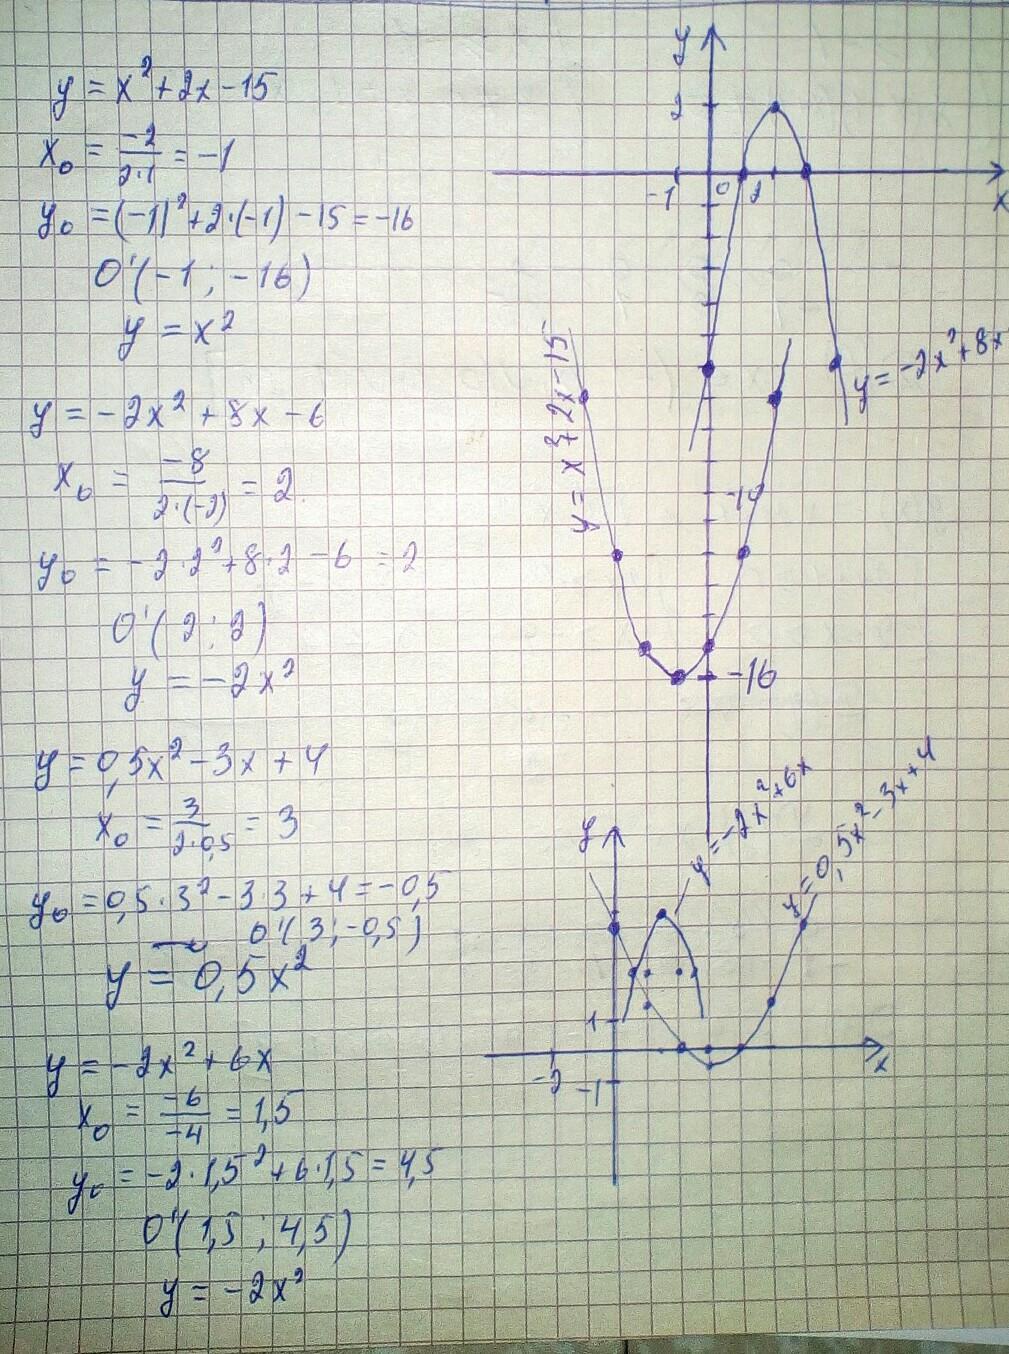 y = x² + 2x - 15
x₀ = -2/2·1 = -1
y₀ = (-1)² + 2·(-1) - 15 = -16
O'(-1; -16)
y = x²
y = -2x² + 8x - 6
x₀ = -8/2·(-2) = 2
y₀ = -2·2² + 8·2 - 6 = 2
O'(2; 2)
y = -2x²
y = 0,5x² - 3x + 4
x₀ = 3/2·0,5 = 3
y₀ = 0,5·3² - 3·3 + 4 = -0,5
O'(3; -0,5)
y = 0,5x²
y = -2x² + 6x
x₀ = -6/-4 = 1,5
y₀ = -2·1,5² + 6·1,5 = 4,5
O'(1,5; 4,5)
y = -2x²
y
2
-1
0
x
y = -2x² + 8x
y = x² + 2x - 15
-16
y
y = -2x² + 6x
y = 0,5x² - 3x + 4
1
-2
-1
x